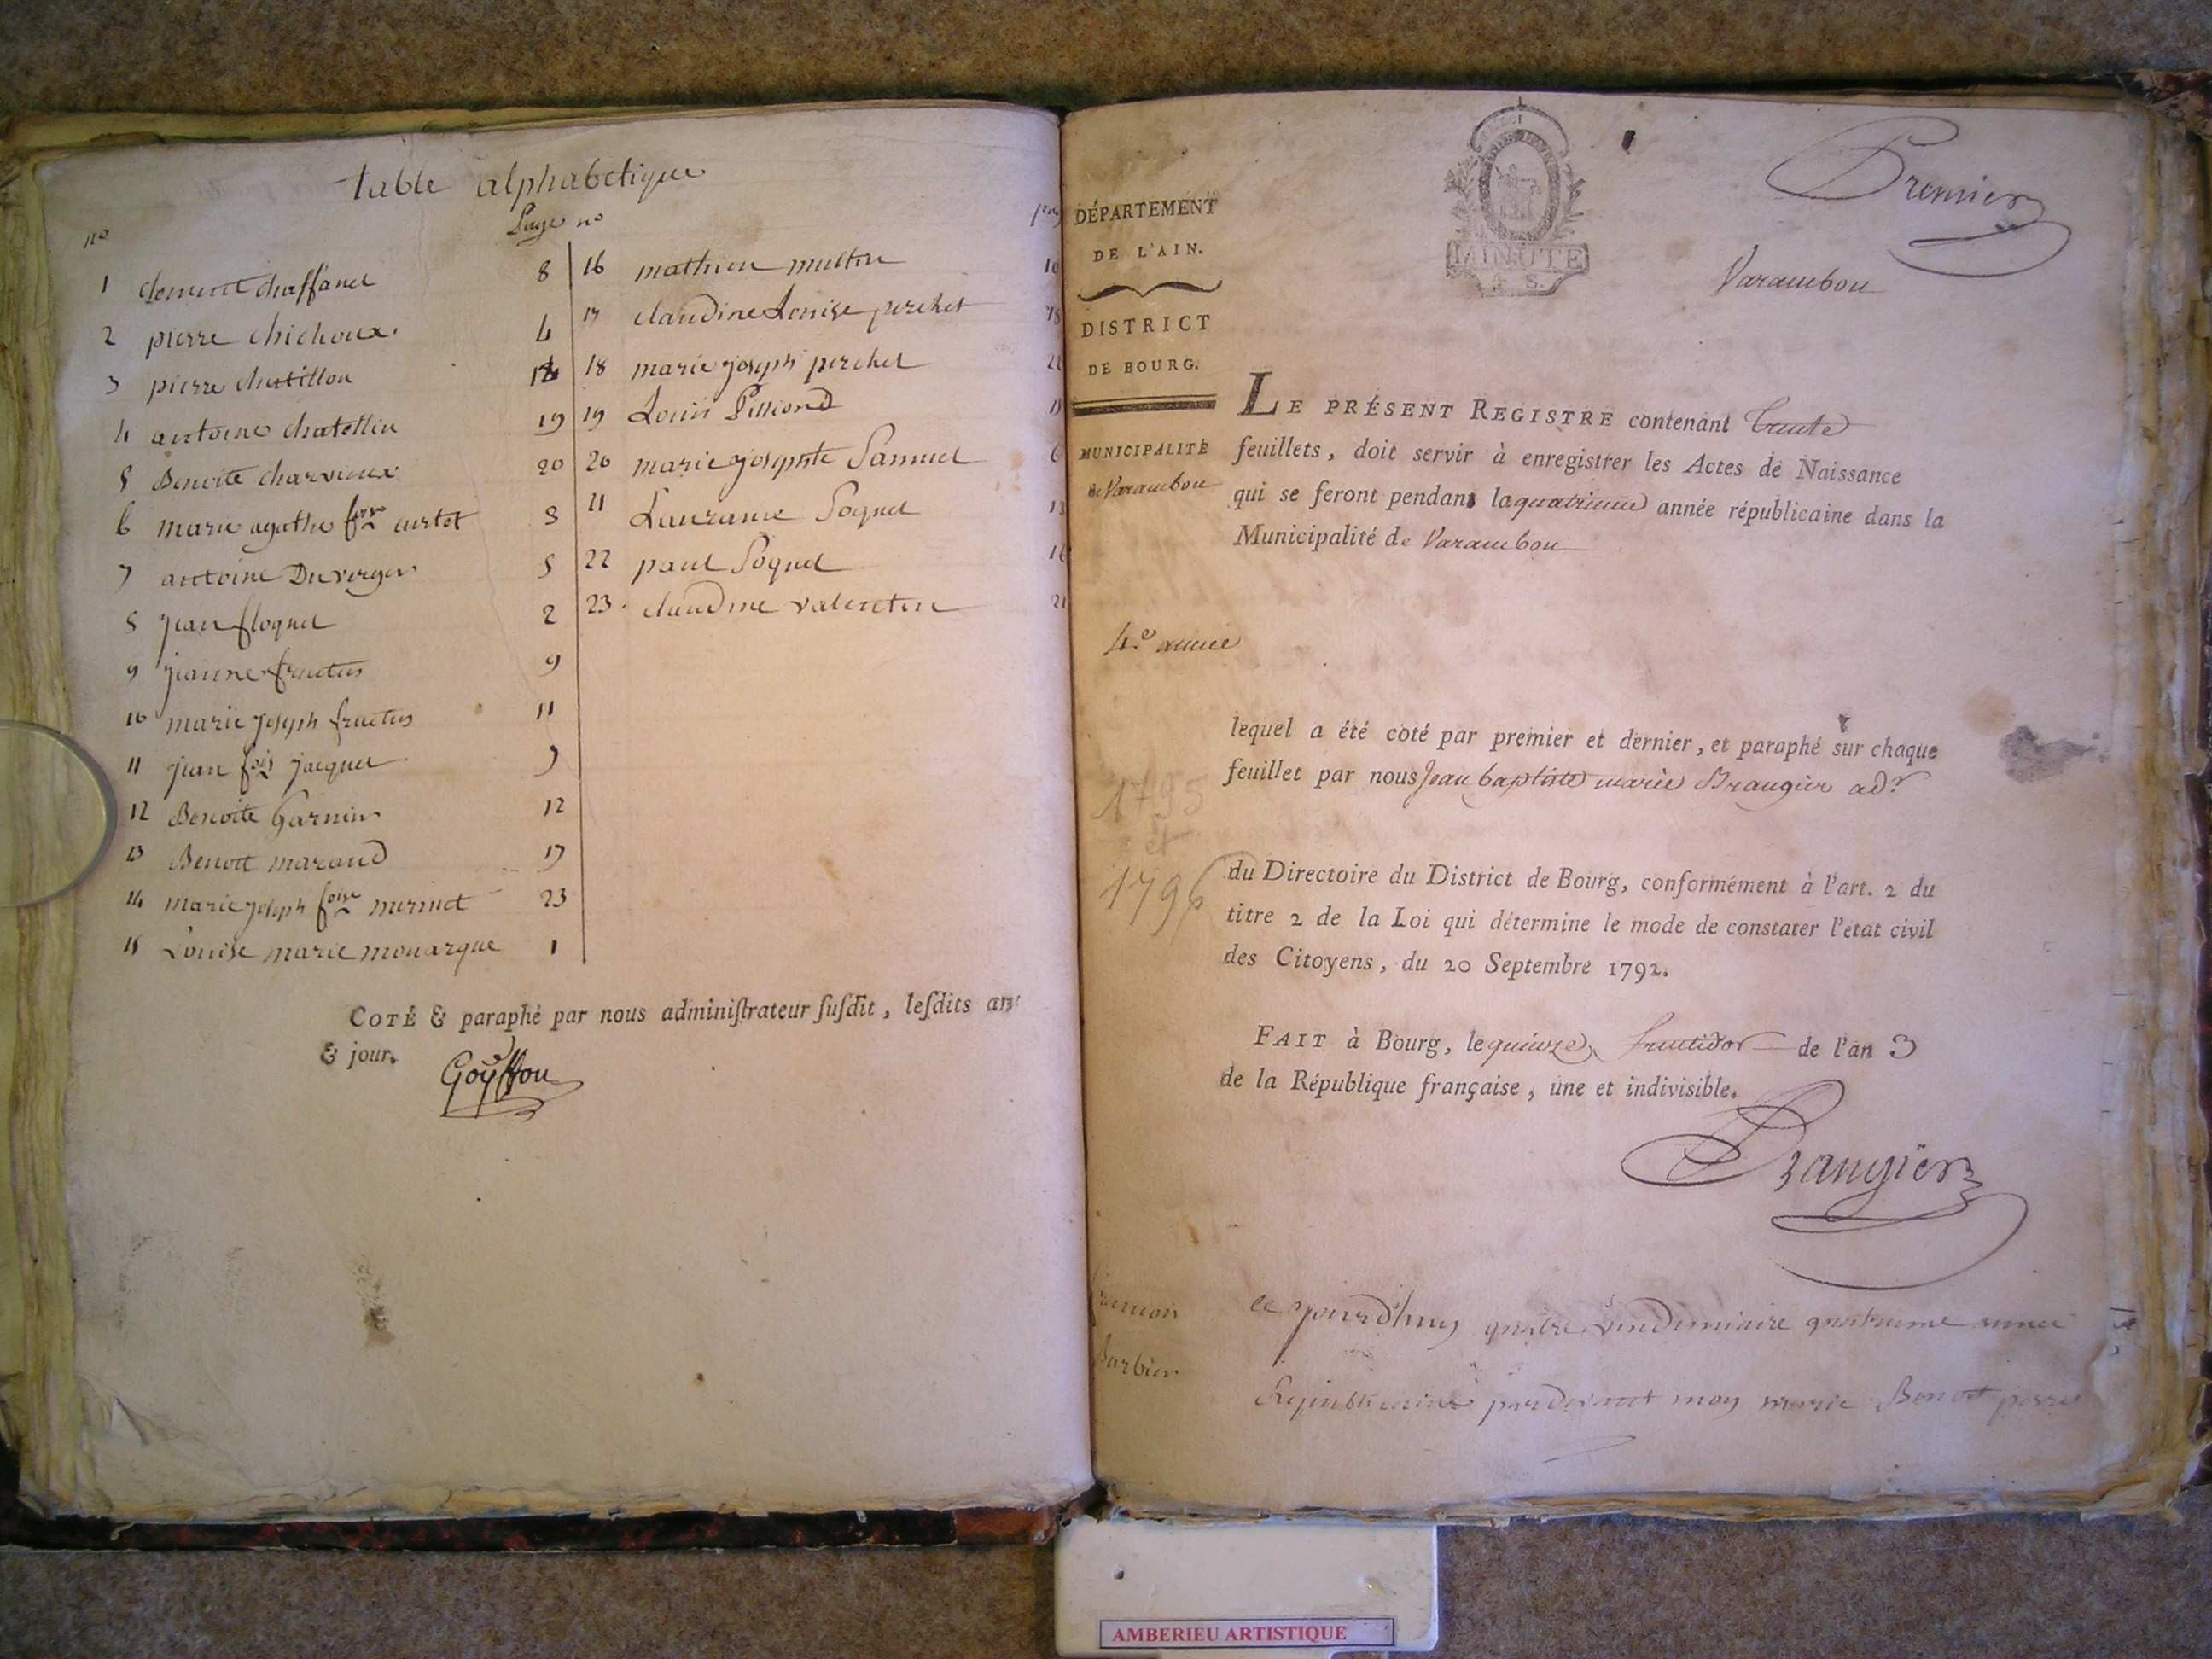 table alphabetique
no Page no pag
1 clement chaffanel 8
2 pierre chichoux. 4
3 pierre chatillon
4 antoine chatellin 19
5 Benoite charvieux 20
6 marie agathe foise curtet 3
7 antoine Duverger 5
8 jean floquet 2
9 jeanne fructus 9
10 marie joseph fructus 11
11 jean fois jacquet 7
12 Benoite Garnier 12
13 Benoit marand 17
14 marie joseph foise mermet 23
15 Louise marie monarque 1
16 mathieu multin
17 claudine Louise perchet
18 marie joseph perchet
19 Louis
20 marie josephte
21
22 paul
23 claudine valentin 21
COTÉ & paraphé par nous administrateur susdit, lesdits an
& jour.
Goÿffon
Premier
MINUTE
4 S.
Varambon
DÉPARTEMENT
DE L'AIN.
DISTRICT
DE BOURG.
MUNICIPALITÉ
de Varambon
4.e année
1795
et
1796
LE PRÉSENT REGISTRE contenant trente
feuillets, doit servir à enregistrer les Actes de Naissance
qui se feront pendant la quatrieme année républicaine dans la
Municipalité de Varambon
lequel a été coté par premier et dernier, et paraphé sur chaque
feuillet par nous Jean baptiste marie Brangier adr
du Directoire du District de Bourg, conformément à l'art. 2 du
titre 2 de la Loi qui détermine le mode de constater l'état civil
des Citoyens, du 20 Septembre 1792.
FAIT à Bourg, le quinze fructidor de l'an 3
de la République française, une et indivisible.
Brangier
Barbier
ce jourd'huy quatre vendemiaire quatrieme année
Republicaine pardevant moy marie Benoit pierre
AMBERIEU ARTISTIQUE